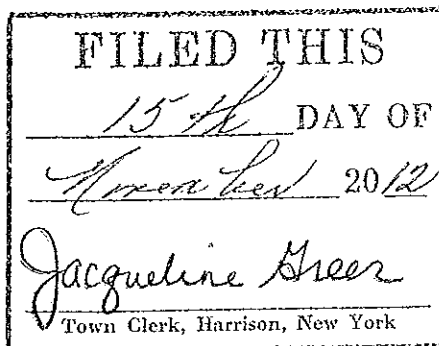 FILED THIS
15th DAY OF
November 2012
Jacqueline Greer
Town Clerk, Harrison, New York